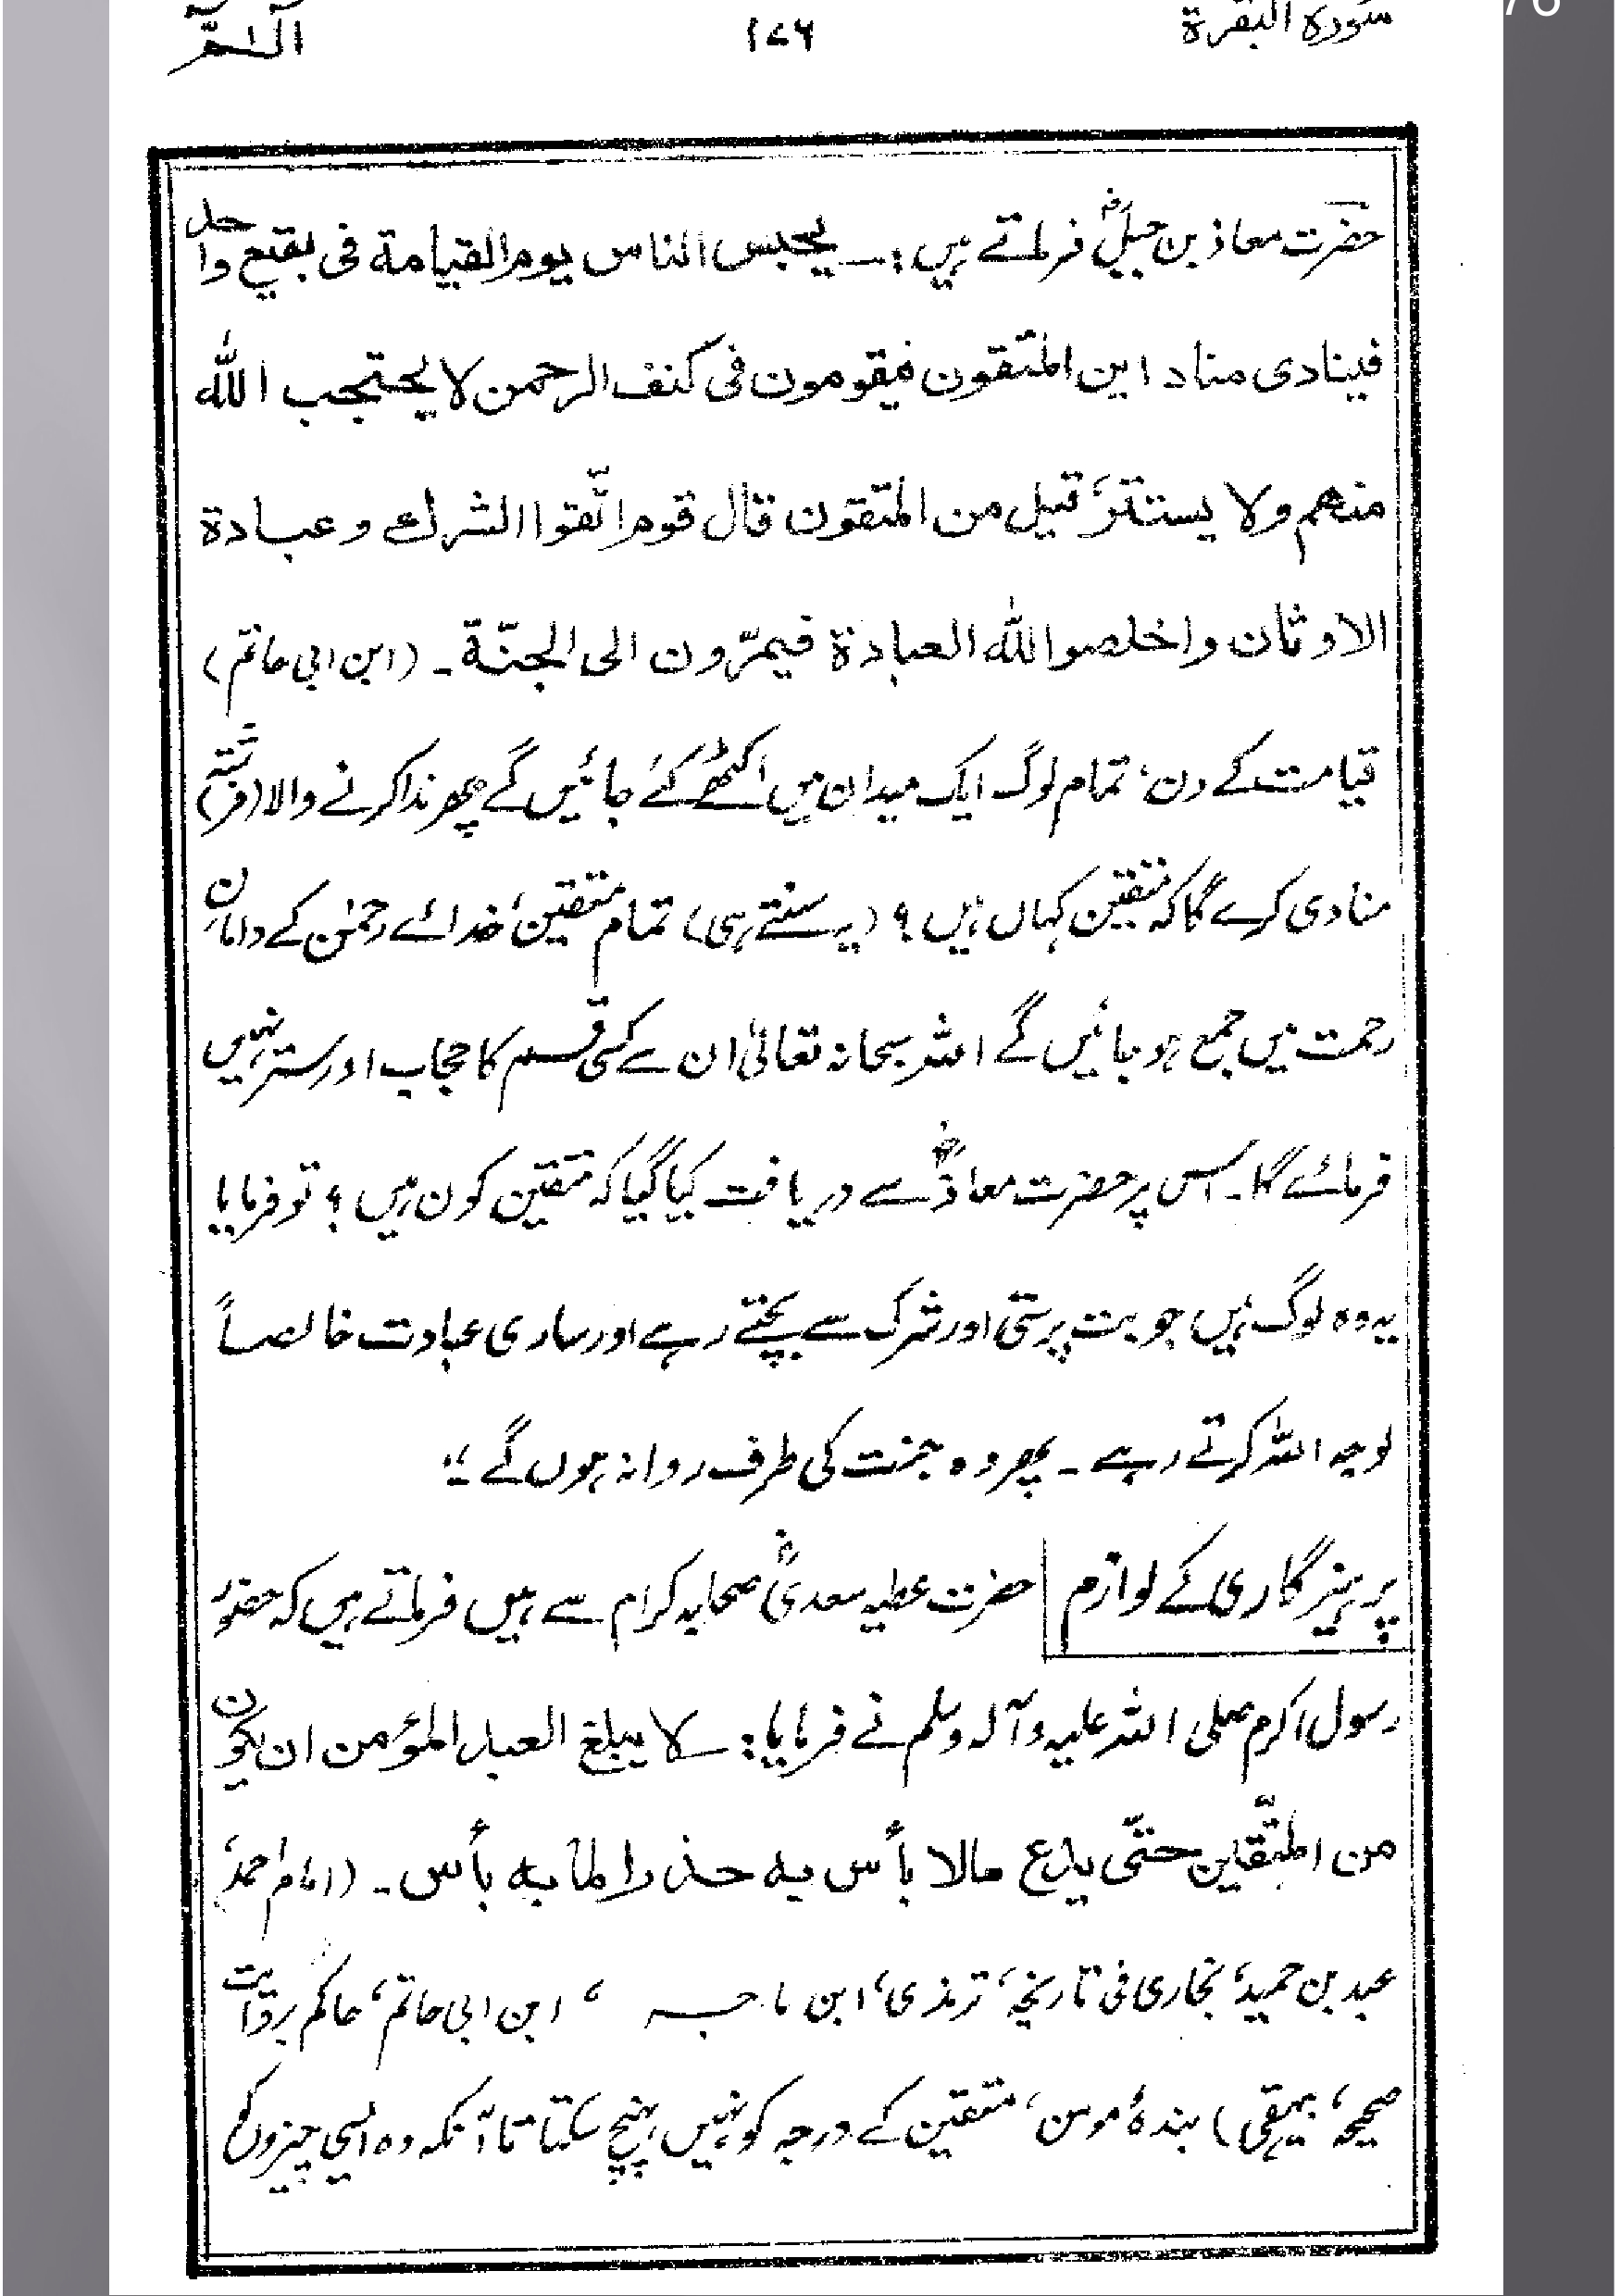 سورة البقرة ۱۷۶ الٓمّٓ
حضرت معاذ بن جبلؓ فرماتے ہیں: یحبس الناس یوم القیامة فی بقیع واحد
فینادی مناد این المتقون فیقومون فی کنف الرحمن لا یحتجب الله
منهم ولا یستتر، قیل من المتقون قال قوم اتّقوا الشرك وعبادة
الاوثان واخلصوا لله العبادة فیمرّون الی الجنّة۔ (ابن ابی حاتم)
قیامت کے دن، تمام لوگ ایک میدان میں اکٹھے کئے جائیں گے پھر ندا کرنے والا (فرشتہ)
منادی کرے گا کہ متقین کہاں ہیں؟ (یہ سنتے ہی) تمام متقین، خدائے رحمٰن کے دامان
رحمت میں جمع ہو جائیں گے اللہ سبحانہ تعالیٰ ان سے کسی قسم کا حجاب اور ستر نہیں
فرمائے گا۔ اس پر حضرت معاذؓ سے دریافت کیا گیا کہ متقین کون ہیں؟ تو فرمایا
یہ وہ لوگ ہیں جو بت پرستی اور شرک سے بچتے رہے اور ساری عبادت خالصاً
لوجہ اللہ کرتے رہے۔ پھر وہ جنت کی طرف روانہ ہوں گے۔"
پرہیزگاری کے لوازم حضرت عطیہ سعدیؓ صحابہ کرام سے ہیں فرماتے ہیں کہ حضور
رسول اکرم صلی اللہ علیہ وآلہ وسلم نے فرمایا: لا یبلغ العبد المؤمن ان یکون
من المتّقین حتّی یدع مالا بأس به حذرا لما به بأس۔ (امام احمد،
عبد بن حمید، بخاری فی تاریخہ، ترمذی، ابن ماجہ، ابن ابی حاتم، حاکم بروایت
صحیحہ، بیہقی) بندۂ مومن، متقین کے درجہ کو نہیں پہنچ سکتا تاآنکہ وہ ایسی چیزوں کو